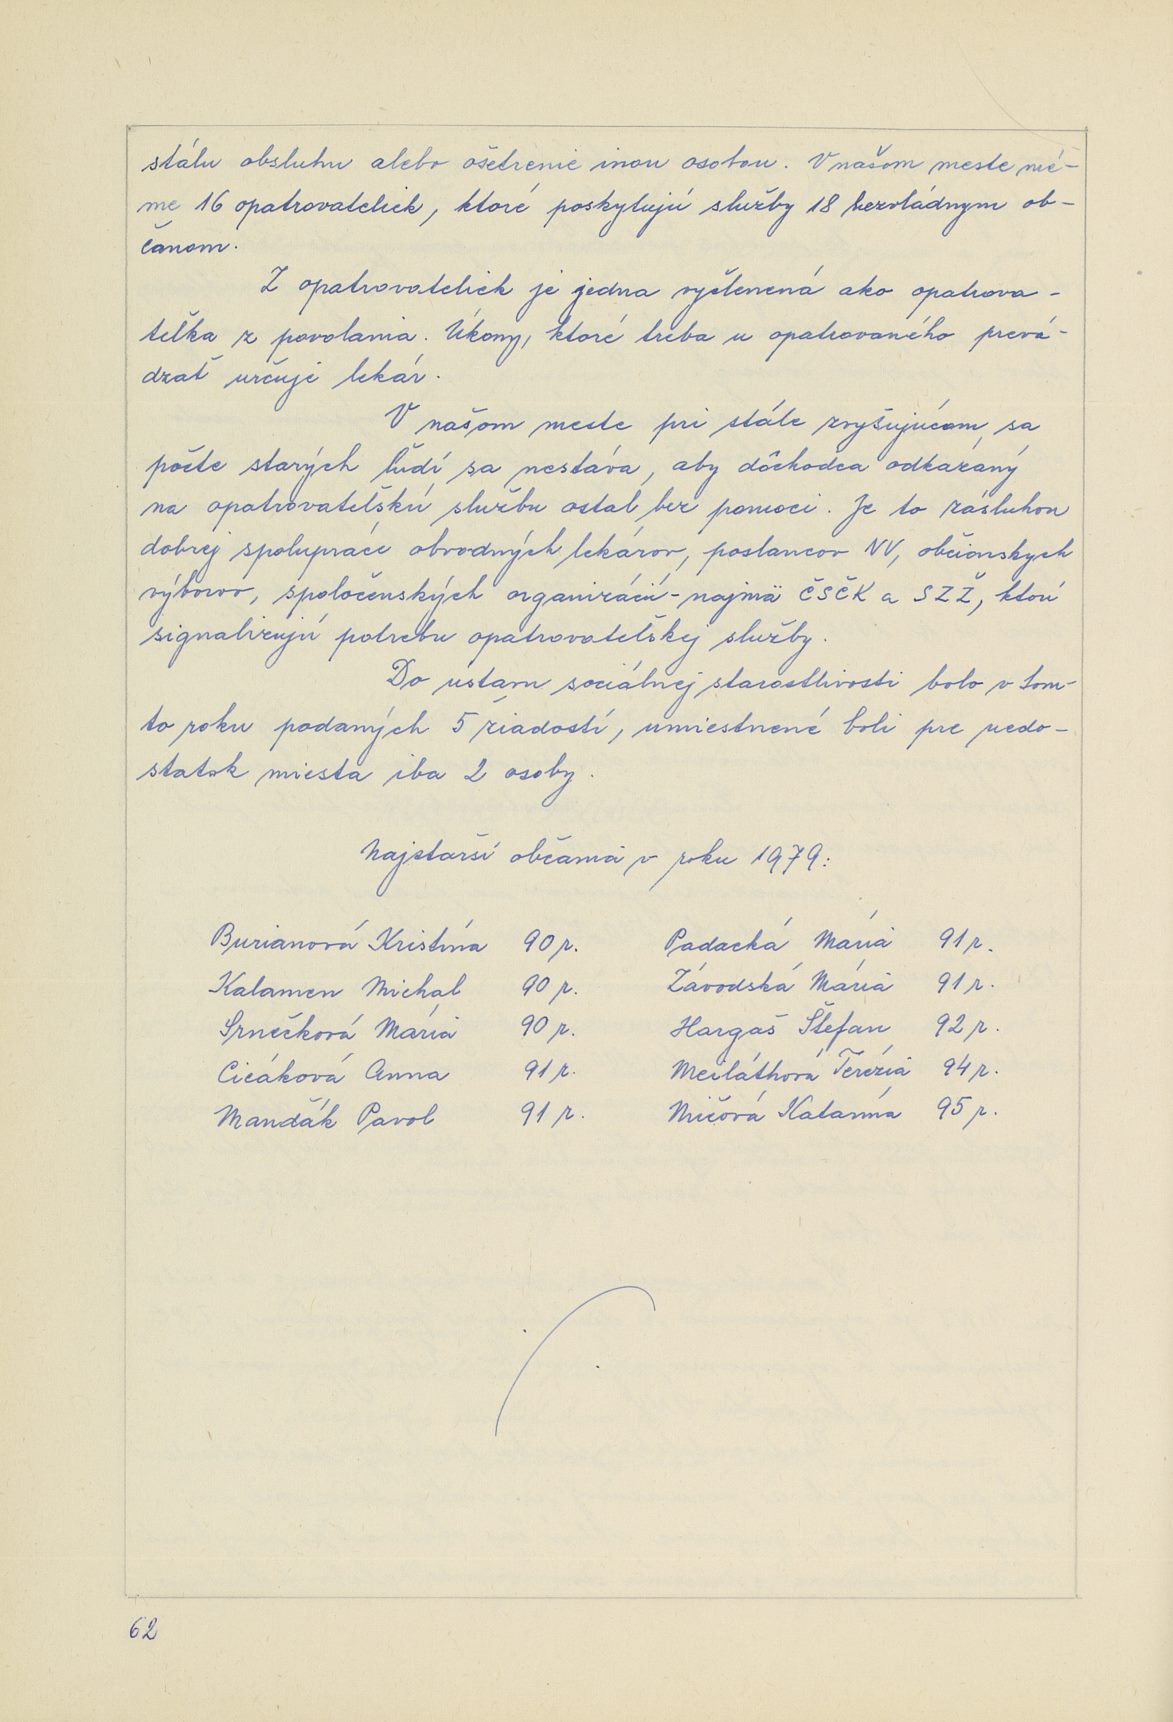 stálu obsluhu alebo ošetrenie inou osobou. V našom meste má-
me 16 opatrovateliek, ktoré poskytujú služby 18 bezvládnym ob-
čanom.
Z opatrovateliek je jedna vyčlenená ako opatrova-
teľka z povolania. Úkony, ktoré treba u opatrovaného prevá-
dzať určuje lekár.
V našom meste pri stále zvyšujúcom sa
počte starých ľudí sa nestáva, aby dôchodca odkázaný
na opatrovateľskú službu ostal bez pomoci. Je to zásluhou
dobrej spolupráce obvodných lekárov, poslancov NV, občianskych
výborov, spoločenských organizácií - najmä ČSČK a SZŽ, ktorí
signalizujú potrebu opatrovateľskej služby.
Do ústavu sociálnej starostlivosti bolo v tom-
to roku podaných 5 žiadostí, umiestnené boli pre nedo-
statok miesta iba 2 osoby.
Najstarší občania v roku 1979:
Burianová Kristína 90 r. Padacká Mária 91 r.
Kalamen Michal 90 r. Závodská Mária 91 r.
Srnečková Mária 90 r. Hargaš Štefan 92 r.
Cicáková Anna 91 r. Meiláthová Terézia 94 r.
Mandák Pavol 91 r. Mičová Katarína 95 r.
62